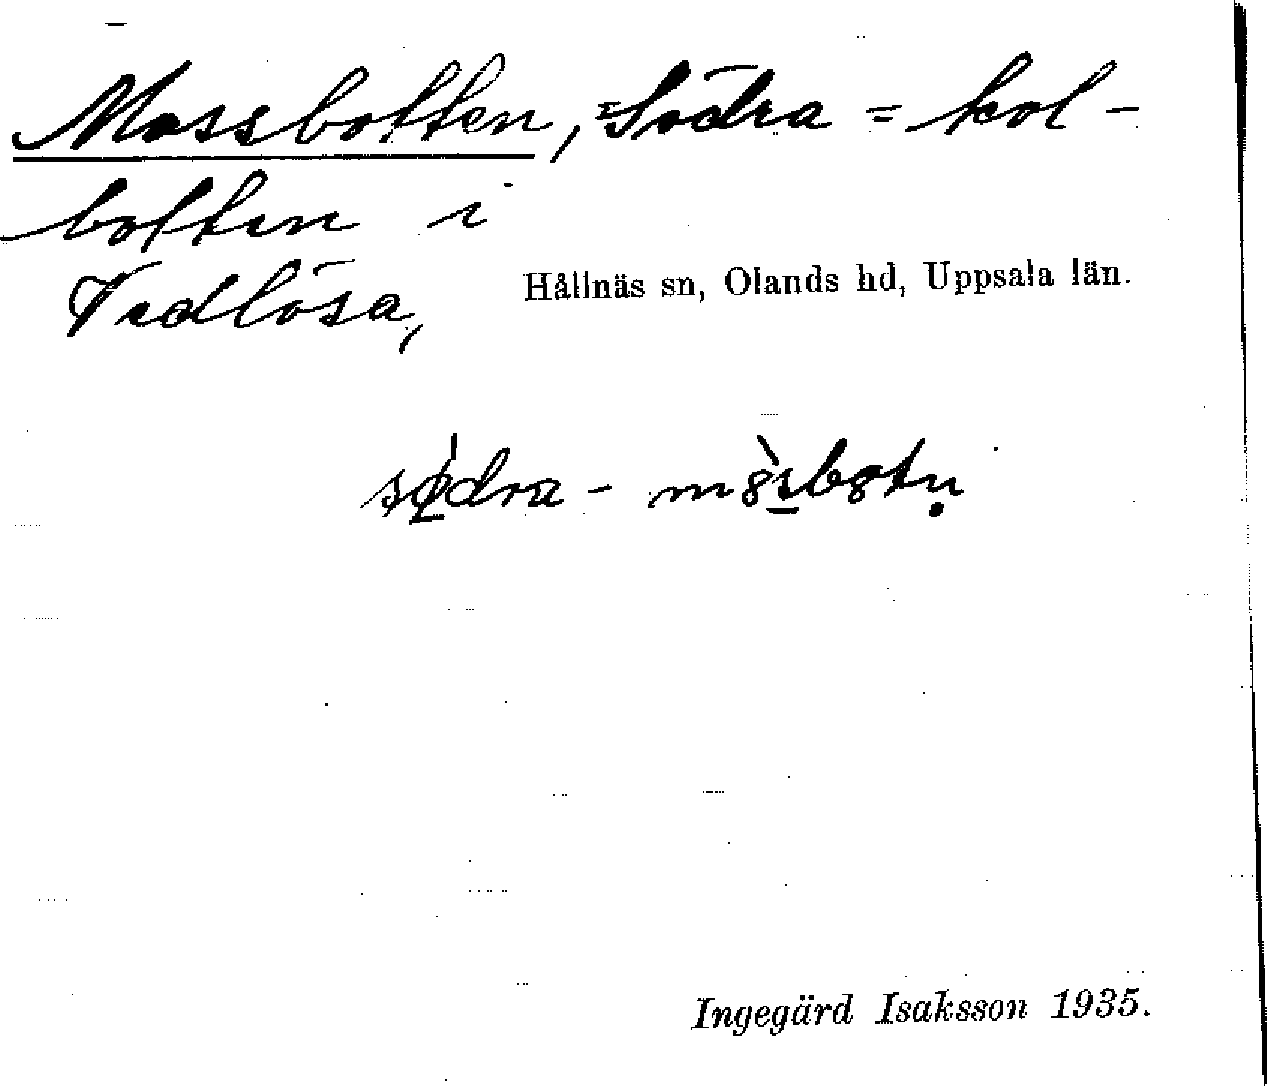 Mossbotten, =Södra = kol-
botten i
Vedlösa, Hållnäs sn, Olands hd, Uppsala län.
södra - m
Ingegärd Isaksson 1935.